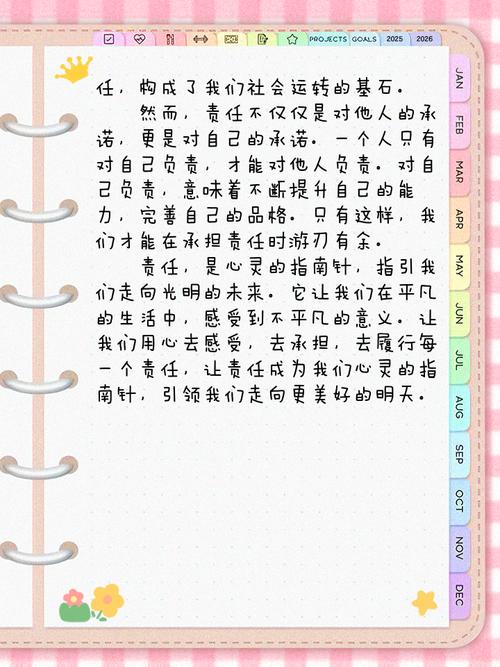 PROJECTS GOALS 2025 2026
任，构成了我们社会运转的基石。
然而，责任不仅仅是对他人的承
诺，更是对自己的承诺。一个人只有
对自己负责，才能对他人负责。对自
己负责，意味着不断提升自己的能
力，完善自己的品格。只有这样，我
们才能在承担责任时游刃有余。
责任，是心灵的指南针，指引我
们走向光明的未来。它让我们在平凡
的生活中，感受到不平凡的意义。让
我们用心去感受，去承担，去履行每
一个责任，让责任成为我们心灵的指
南针，引领我们走向更美好的明天。
JAN
FEB
MAR
APR
MAY
JUN
JUL
AUG
SEP
OCT
NOV
DEC